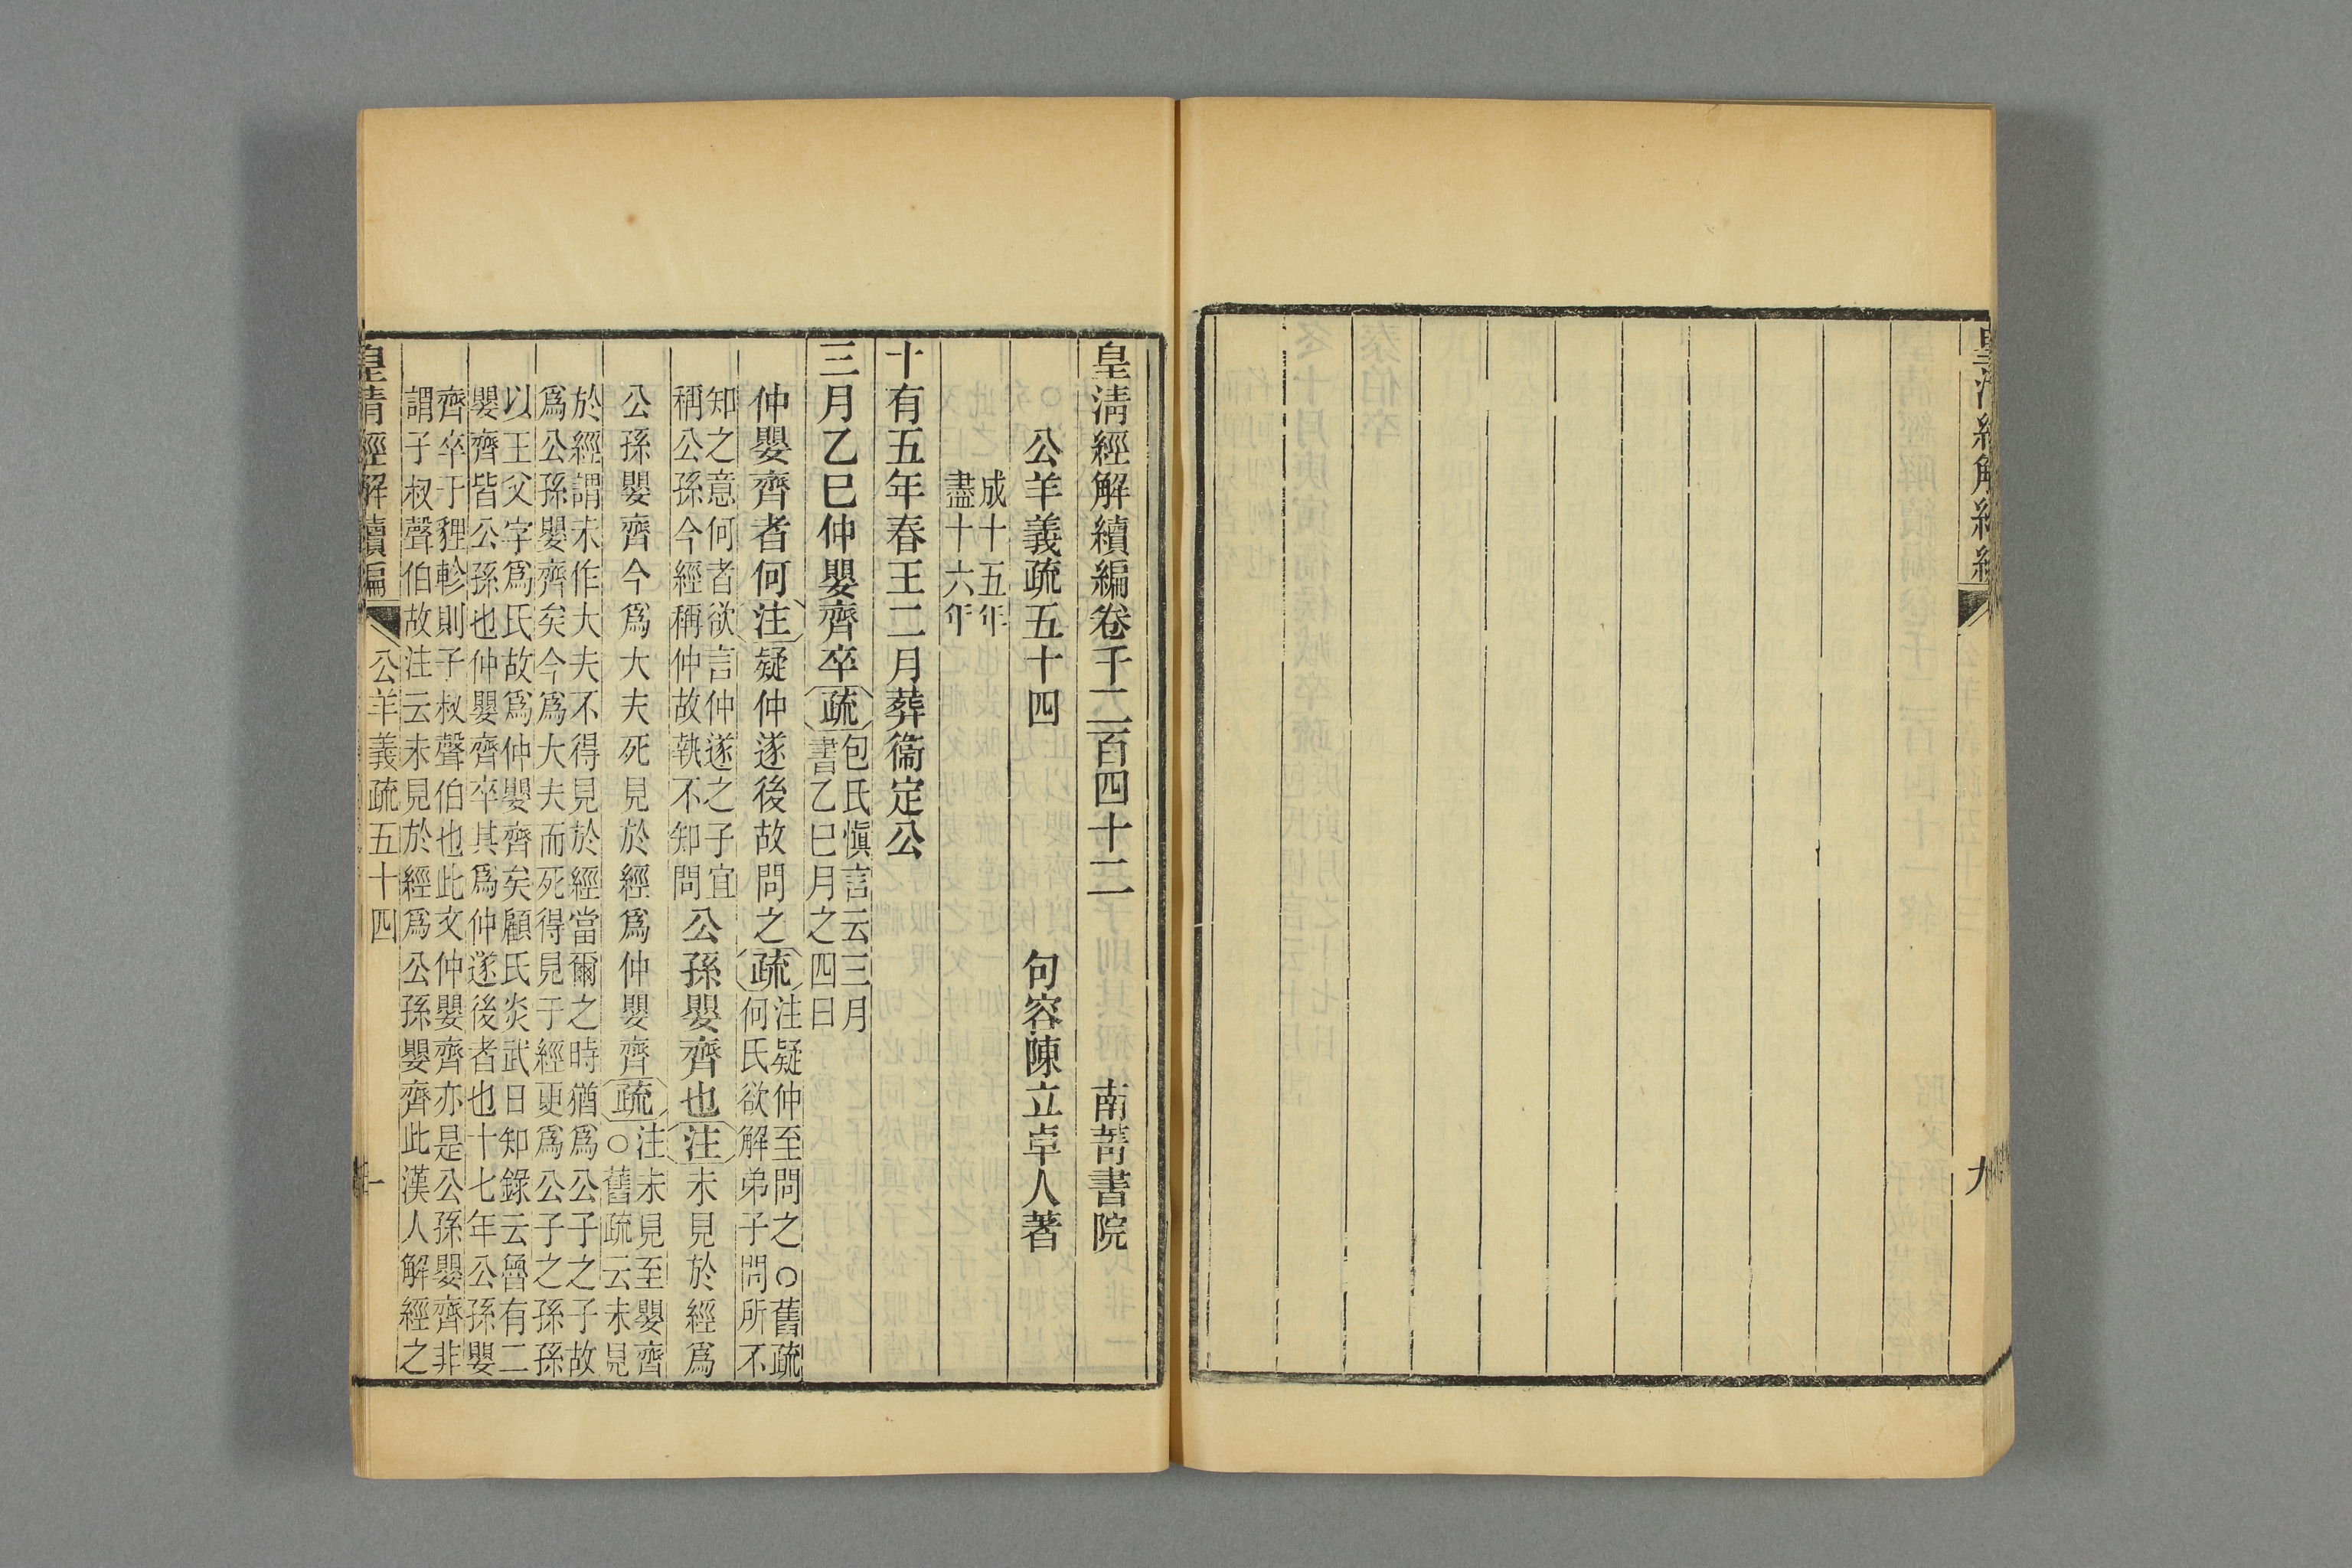 皇清經解續編
九
皇清經解續編卷千二百四十二
南菁書院
公羊義疏五十四
句容陳立卓人著
成十五年
盡十六年
十有五年春王二月葬衞定公
三月乙巳仲嬰齊卒疏包氏愼言云三月
書乙巳月之四日
仲嬰齊者何注疑仲遂後故問之疏注疑仲至問之○舊疏
何氏欲解弟子問所不
知之意何者欲言仲遂之子宜
稱公孫今經稱仲故執不知問公孫嬰齊也注未見於經爲
公孫嬰齊今爲大夫死見於經爲仲嬰齊疏注未見至嬰齊
○舊疏云未見
於經謂未作大夫不得見於經當爾之時猶爲公子之子故
爲公孫嬰齊矣今爲大夫而死得見于經更爲公子之孫孫
以王父字爲氏故爲仲嬰齊矣顧氏炎武日知錄云魯有二
嬰齊皆公孫也仲嬰齊卒其爲仲遂後者也十七年公孫嬰
齊卒于貍軫則子叔聲伯也此文仲嬰齊亦是公孫嬰齊非
謂子叔聲伯故注云未見於經爲公孫嬰齊此漢人解經之
皇清經解續編
公羊義疏五十四
一